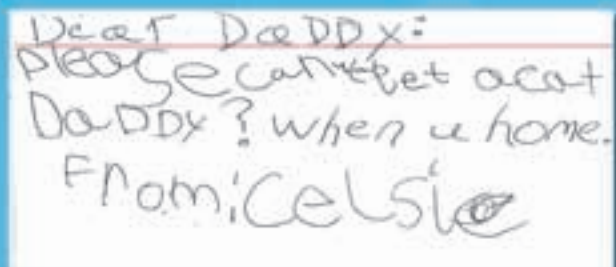 Dear DaDDy:
please can we get a cat
DaDDy? when u home.
From: Celsie